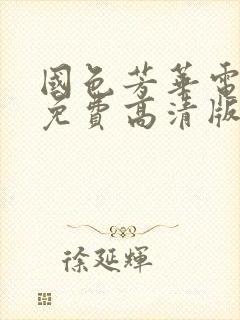 國色芳華電
免費高清版
徐延輝